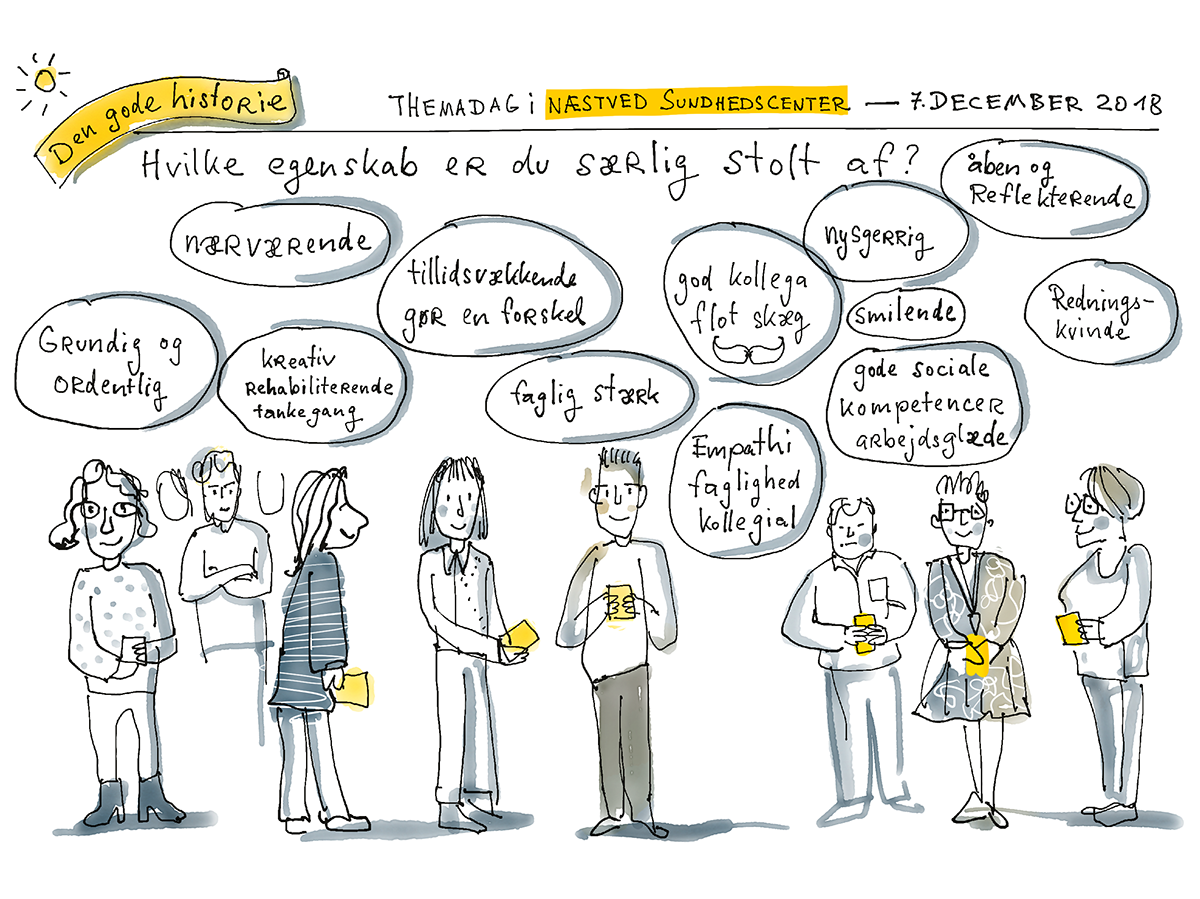 Den gode historie
THEMADAG i NÆSTVED SUNDHEDSCENTER — 7. DECEMBER 2018
Hvilke egenskab er du særlig stolt af?
åben og
Reflekterende
nærværende
nysgerrig
tillidsvækkende
gør en forskel
god kollega
flot skæg
smilende
Rednings-
kvinde
Grundig og
ordentlig
kreativ
Rehabiliterende
tankegang
faglig stærk
gode sociale
kompetencer
arbejdsglæde
Empathi
faglighed
kollegial